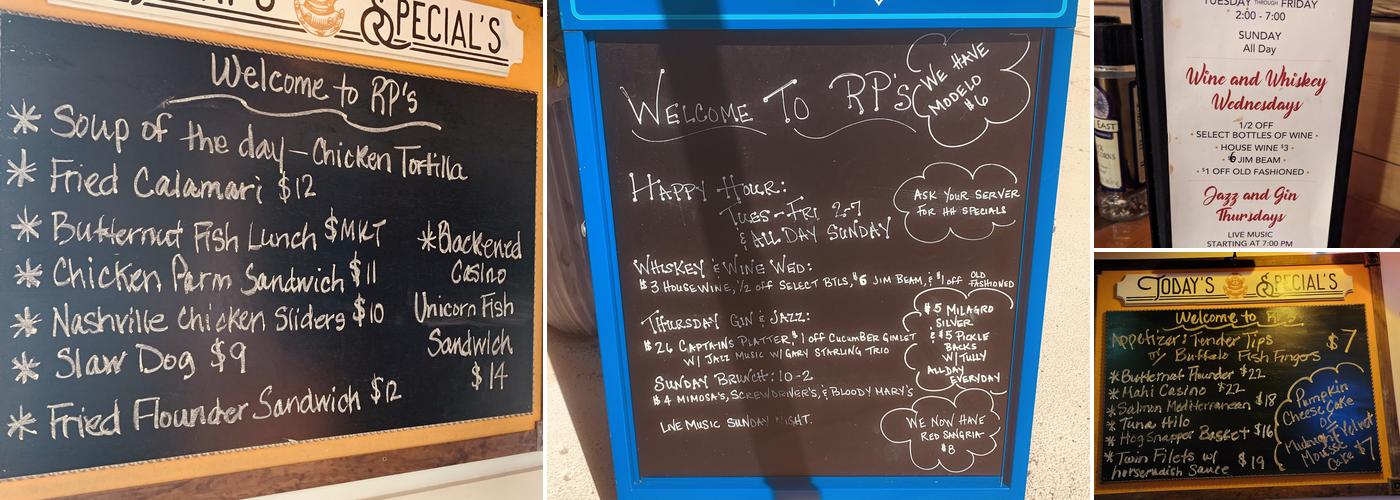 SPECIAL'S
Welcome to RP's
* Soup of the day - Chicken Tortilla
* Fried Calamari $12
* Butternut Fish Lunch $MKT
* Chicken Parm Sandwich $11
* Nashville Chicken Sliders $10
* Slaw Dog $9
* Fried Flounder Sandwich $12
* Blackened
Casino
Unicorn Fish
Sandwich
$14
WELCOME TO RP'S
WE HAVE
MODELO
$6
HAPPY HOUR:
TUES-FRI 2-7
& ALL DAY SUNDAY
ASK YOUR SERVER
FOR HH SPECIALS
WHISKEY & WINE WED:
$3 HOUSE WINE, 1/2 off SELECT BTLS, $6 JIM BEAM, & $1 off OLD FASHIONED
THURSDAY GIN & JAZZ:
$26 CAPTAINS PLATTER, $1 off CUCUMBER GIMLET
W/ JAZZ MUSIC W/ GARY STARLING TRIO
SUNDAY BRUNCH: 10-2
$4 MIMOSA'S, SCREWDRIVER'S, & BLOODY MARY'S
LIVE MUSIC SUNDAY NIGHT.
$5 MILAGRO
SILVER
& $5 PICKLE
BACKS
W/ TULLY
ALL DAY
EVERYDAY
WE NOW HAVE
RED SANGRIA
$8
TUESDAY THROUGH FRIDAY
2:00 - 7:00
SUNDAY
All Day
Wine and Whiskey
Wednesdays
1/2 OFF
SELECT BOTTLES OF WINE
HOUSE WINE $3
$6 JIM BEAM
$1 OFF OLD FASHIONED
Jazz and Gin
Thursdays
LIVE MUSIC
STARTING AT 7:00 PM
EAST
TODAY'S SPECIAL'S
Welcome to RP's
Appetizer: Tender Tips $7
Buffalo Fish Fingers
* Butternut Flounder $22
* Mahi Casino $22
* Salmon Mediterranean $18
* Tuna Hilo
* Hogsnapper Basket $16
* Twin Filets w/
horseradish Sauce $19
Pumpkin
Cheese Cake
or
Midnight Velvet
Mousse
Cake $7